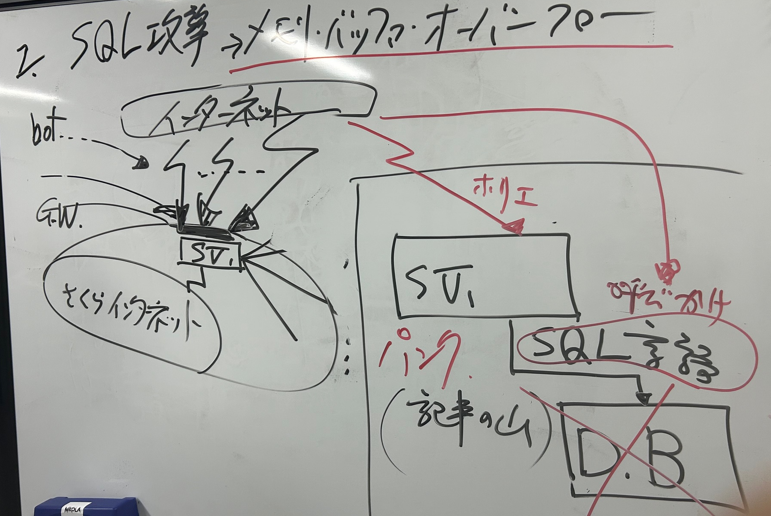 2. SQL攻撃→メモリ・バッファ・オーバーフロー
インターネット
bot....
G.W.
SV₁
さくらインターネット
ホリエ
SV₁
呼びかけ
SQL言語
パンク
(記事の山)
D.B